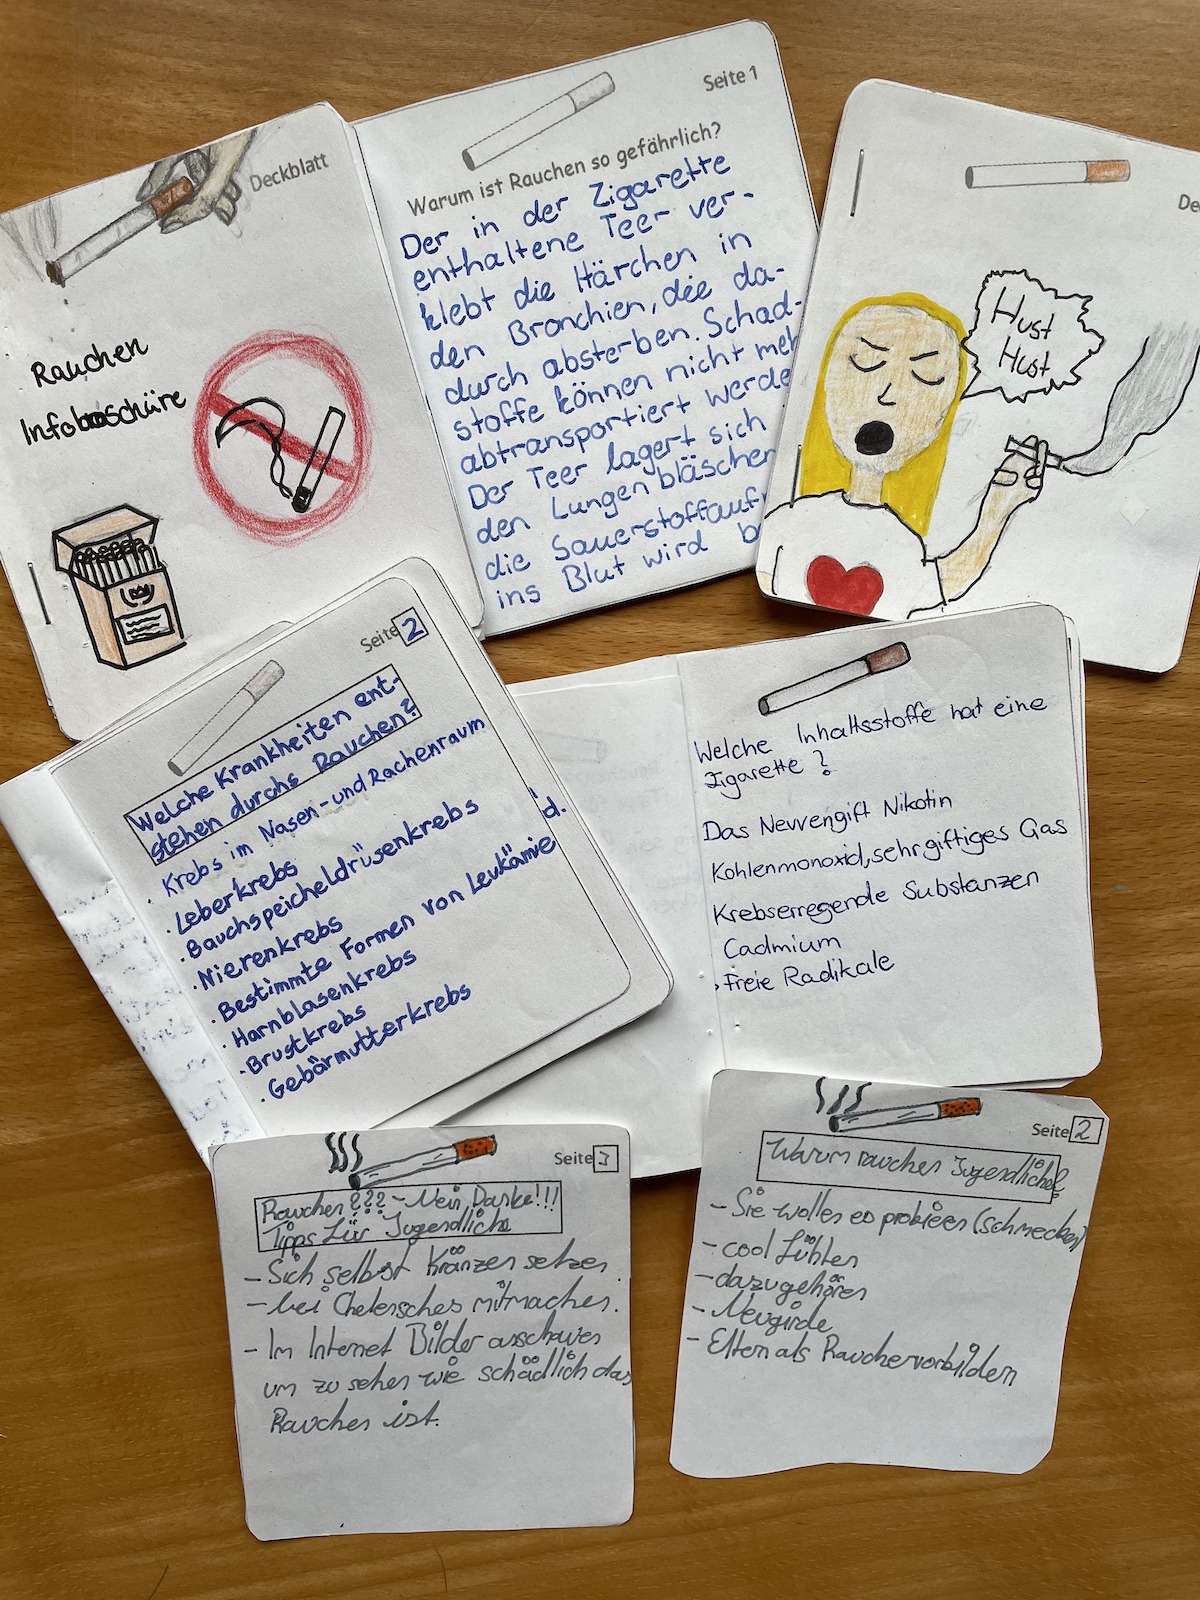 Deckblatt
Rauchen
Infobroschüre
Seite 1
Warum ist Rauchen so gefährlich?
Der in der Zigarette
enthaltene Teer ver-
klebt die Härchen in
den Bronchien, die da-
durch absterben. Schad-
stoffe können nicht meh
abtransportiert werde
Der Teer lagert sich
den Lungenbläschen
die Sauerstoffauf
ins Blut wird b
De
Hust
Hust
Seite 2
Welche Krankheiten ent-
stehen durchs Rauchen?
Krebs im Nasen- und Rachenraum
· Leberkrebs
· Bauchspeicheldrüsenkrebs
· Nierenkrebs
· Bestimmte Formen von Leukämie
· Harnblasenkrebs
· Brustkrebs
· Gebärmutterkrebs
d.
Welche Inhaltsstoffe hat eine
Zigarette?
Das Nervengift Nikotin
Kohlenmonoxid, sehr giftiges Gas
Krebserregende Substanzen
Cadmium
· Freie Radikale
Seite 3
Rauchen??? - Nein Danke!!!
Tipps für Jugendliche
- Sich selbst Gränzen setzen.
- bei Chelensches mitmachen.
- Im Internet Bilder anschauen
um zu sehen wie schädlich das
Rauchen ist.
Seite 2
Warum rauchen Jugendliche?
- Sie wollen es probieren (schmecken)
- cool fühlen
- dazugehören
- Neugirde
- Eltern als Rauchervorbildern